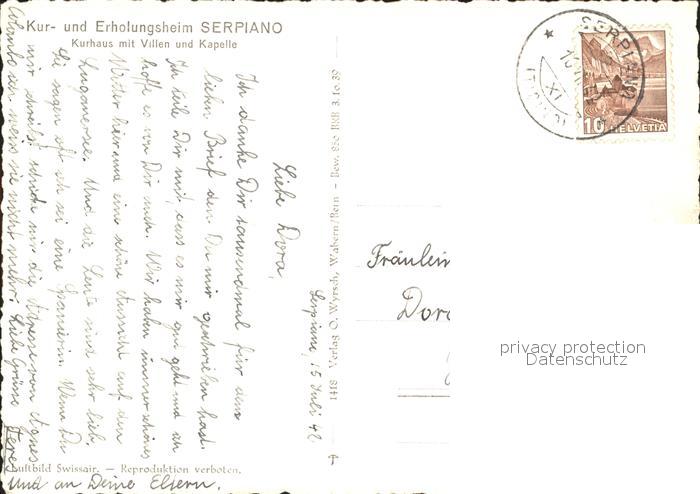 Kur- und Erholungsheim SERPIANO
Kurhaus mit Villen und Kapelle
Serpiano, 15 Juli 42
Liebe Dora,
Ich danke Dir tausendmal für den
lieben Brief den Du mir geschrieben hast.
Ich teile Dir mit, dass es mir gut geht und ich
hoffe es von Dir auch. Wir haben immer schönes
Wetter hier und eine schöne Aussicht auf den
Luganersee. Und die Leute sind sehr lieb.
Sie sagen oft ich sei eine Spanierin. Wenn Du
mir schreibst schick mir die Adresse von Agnes
ich weiss sie nicht mehr. Liebe Grüsse
Und an Deine Eltern.
Luftbild Swissair. — Reproduktion verboten.
1418 Verlag O. Wyrsch, Wabern/Bern - Bew. 886 BRB 3.10.39
Fräulein
SERPIANO
10
HELVETIA
privacy protection
Datenschutz